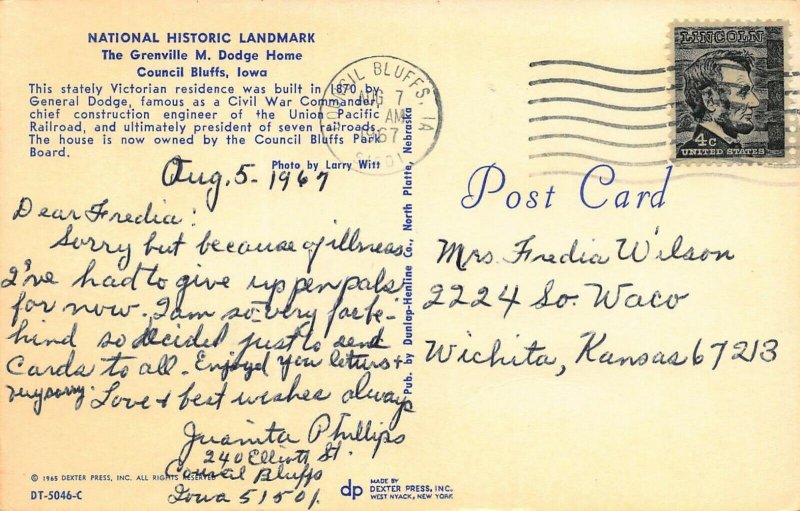 NATIONAL HISTORIC LANDMARK
The Grenville M. Dodge Home
Council Bluffs, Iowa
This stately Victorian residence was built in 1870 by
General Dodge, famous as a Civil War Commander,
chief construction engineer of the Union Pacific
Railroad, and ultimately president of seven railroads.
The house is now owned by the Council Bluffs Park
Board.
Photo by Larry Witt
Aug. 5 - 1967
Dear Fredia:
Sorry but because of illness
I've had to give up penpals
for now. I am so very far be-
hind so decided just to send
Cards to all. Enjoyed you letters +
very sorry. Love + best wishes always
Juanita Phillips
240 Elliott St.
Council Bluffs
Iowa 51501
© 1965 DEXTER PRESS, INC. ALL RIGHTS RESERVED
DT-5046-C
Pub. by Dunlap-Henline Co., North Platte, Nebraska
dp
MADE BY
DEXTER PRESS, INC.
WEST NYACK, NEW YORK
COUNCIL BLUFFS, IA
AUG 7
AM
1967
LINCOLN
4c
UNITED STATES
Post Card
Mrs. Fredia Wilson
2224 So. Waco
Wichita, Kansas 67213